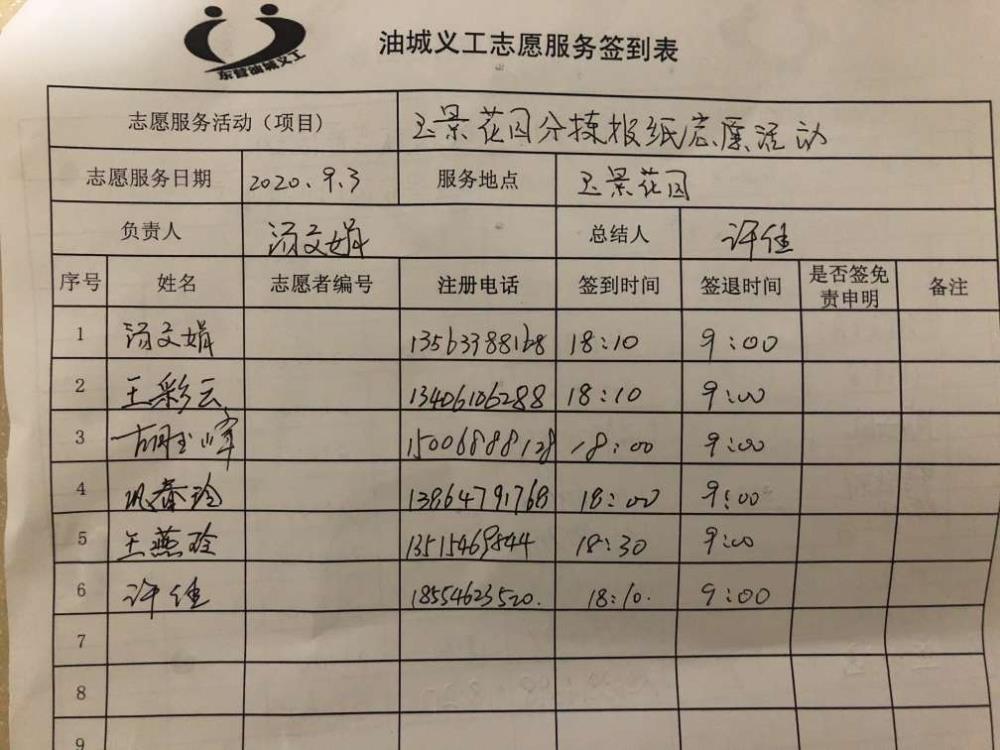 东营油城义工
油城义工志愿服务签到表
志愿服务活动（项目） 玉景花园分拣报纸志愿活动
志愿服务日期 2020.9.3 服务地点 玉景花园
负责人 汤文娟 总结人 许佳
序号 姓名 志愿者编号 注册电话 签到时间 签退时间 是否签免责申明 备注
1 汤文娟 13563388168 18:10 9:00
2 王彩云 13406106288 18:10 9:00
3 胡玉峰 15006888128 18:00 9:00
4 巩春玲 13864791768 18:00 9:00
5 王燕玲 13515469844 18:30 9:00
6 许佳 18554623520. 18:10. 9:00
7
8
9